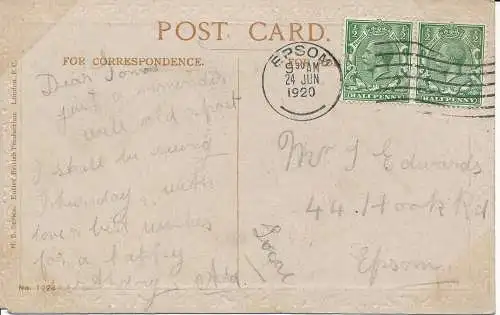 POST CARD.
FOR CORRESPONDENCE.
EPSOM
9 30 AM
24 JUN
1920
½ ½
HALFPENNY HALFPENNY
Dear
just a
well old sport
I shall be seeing
Thursday, with
love & best wishes
for a happy
Birthday,
Mr T Edwards
44. Hook Rd
Epsom
Local
London, E.C.
No.